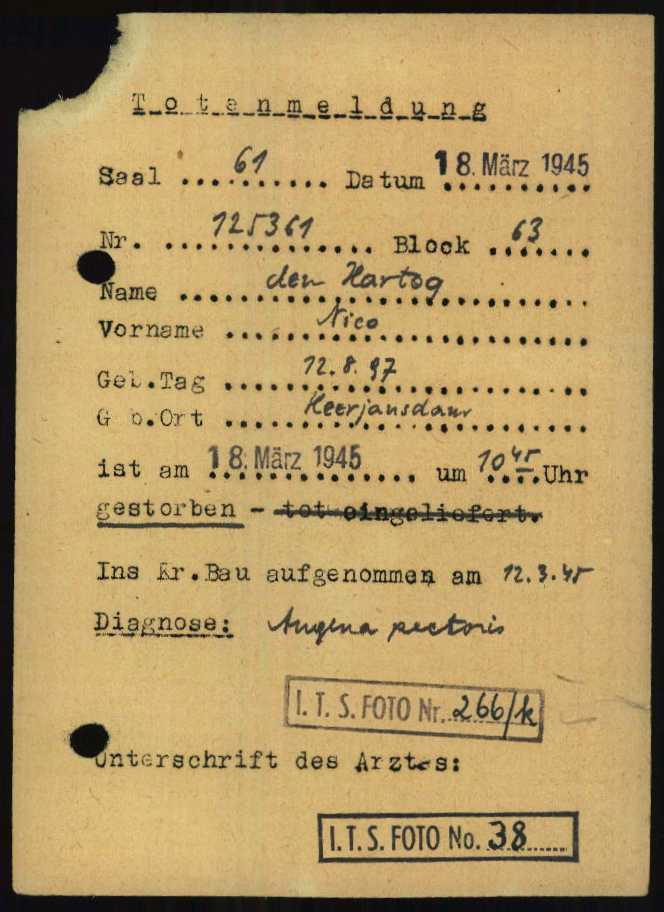 Totenmeldung
Saal ....61.... Datum 18. März 1945
Nr. 125361 Block 63
Name den Hartog
Vorname Nico
Geb.Tag 12.8.97
Geb.Ort Heerjansdam
ist am 18. März 1945 um 10 45 Uhr
gestorben - tot eingeliefert.
Ins Kr.Bau aufgenommen am 12.3.45
Diagnose: Angina pectoris
I.T.S. FOTO Nr. 266/k
Unterschrift des Arztes:
I.T.S. FOTO No. 38